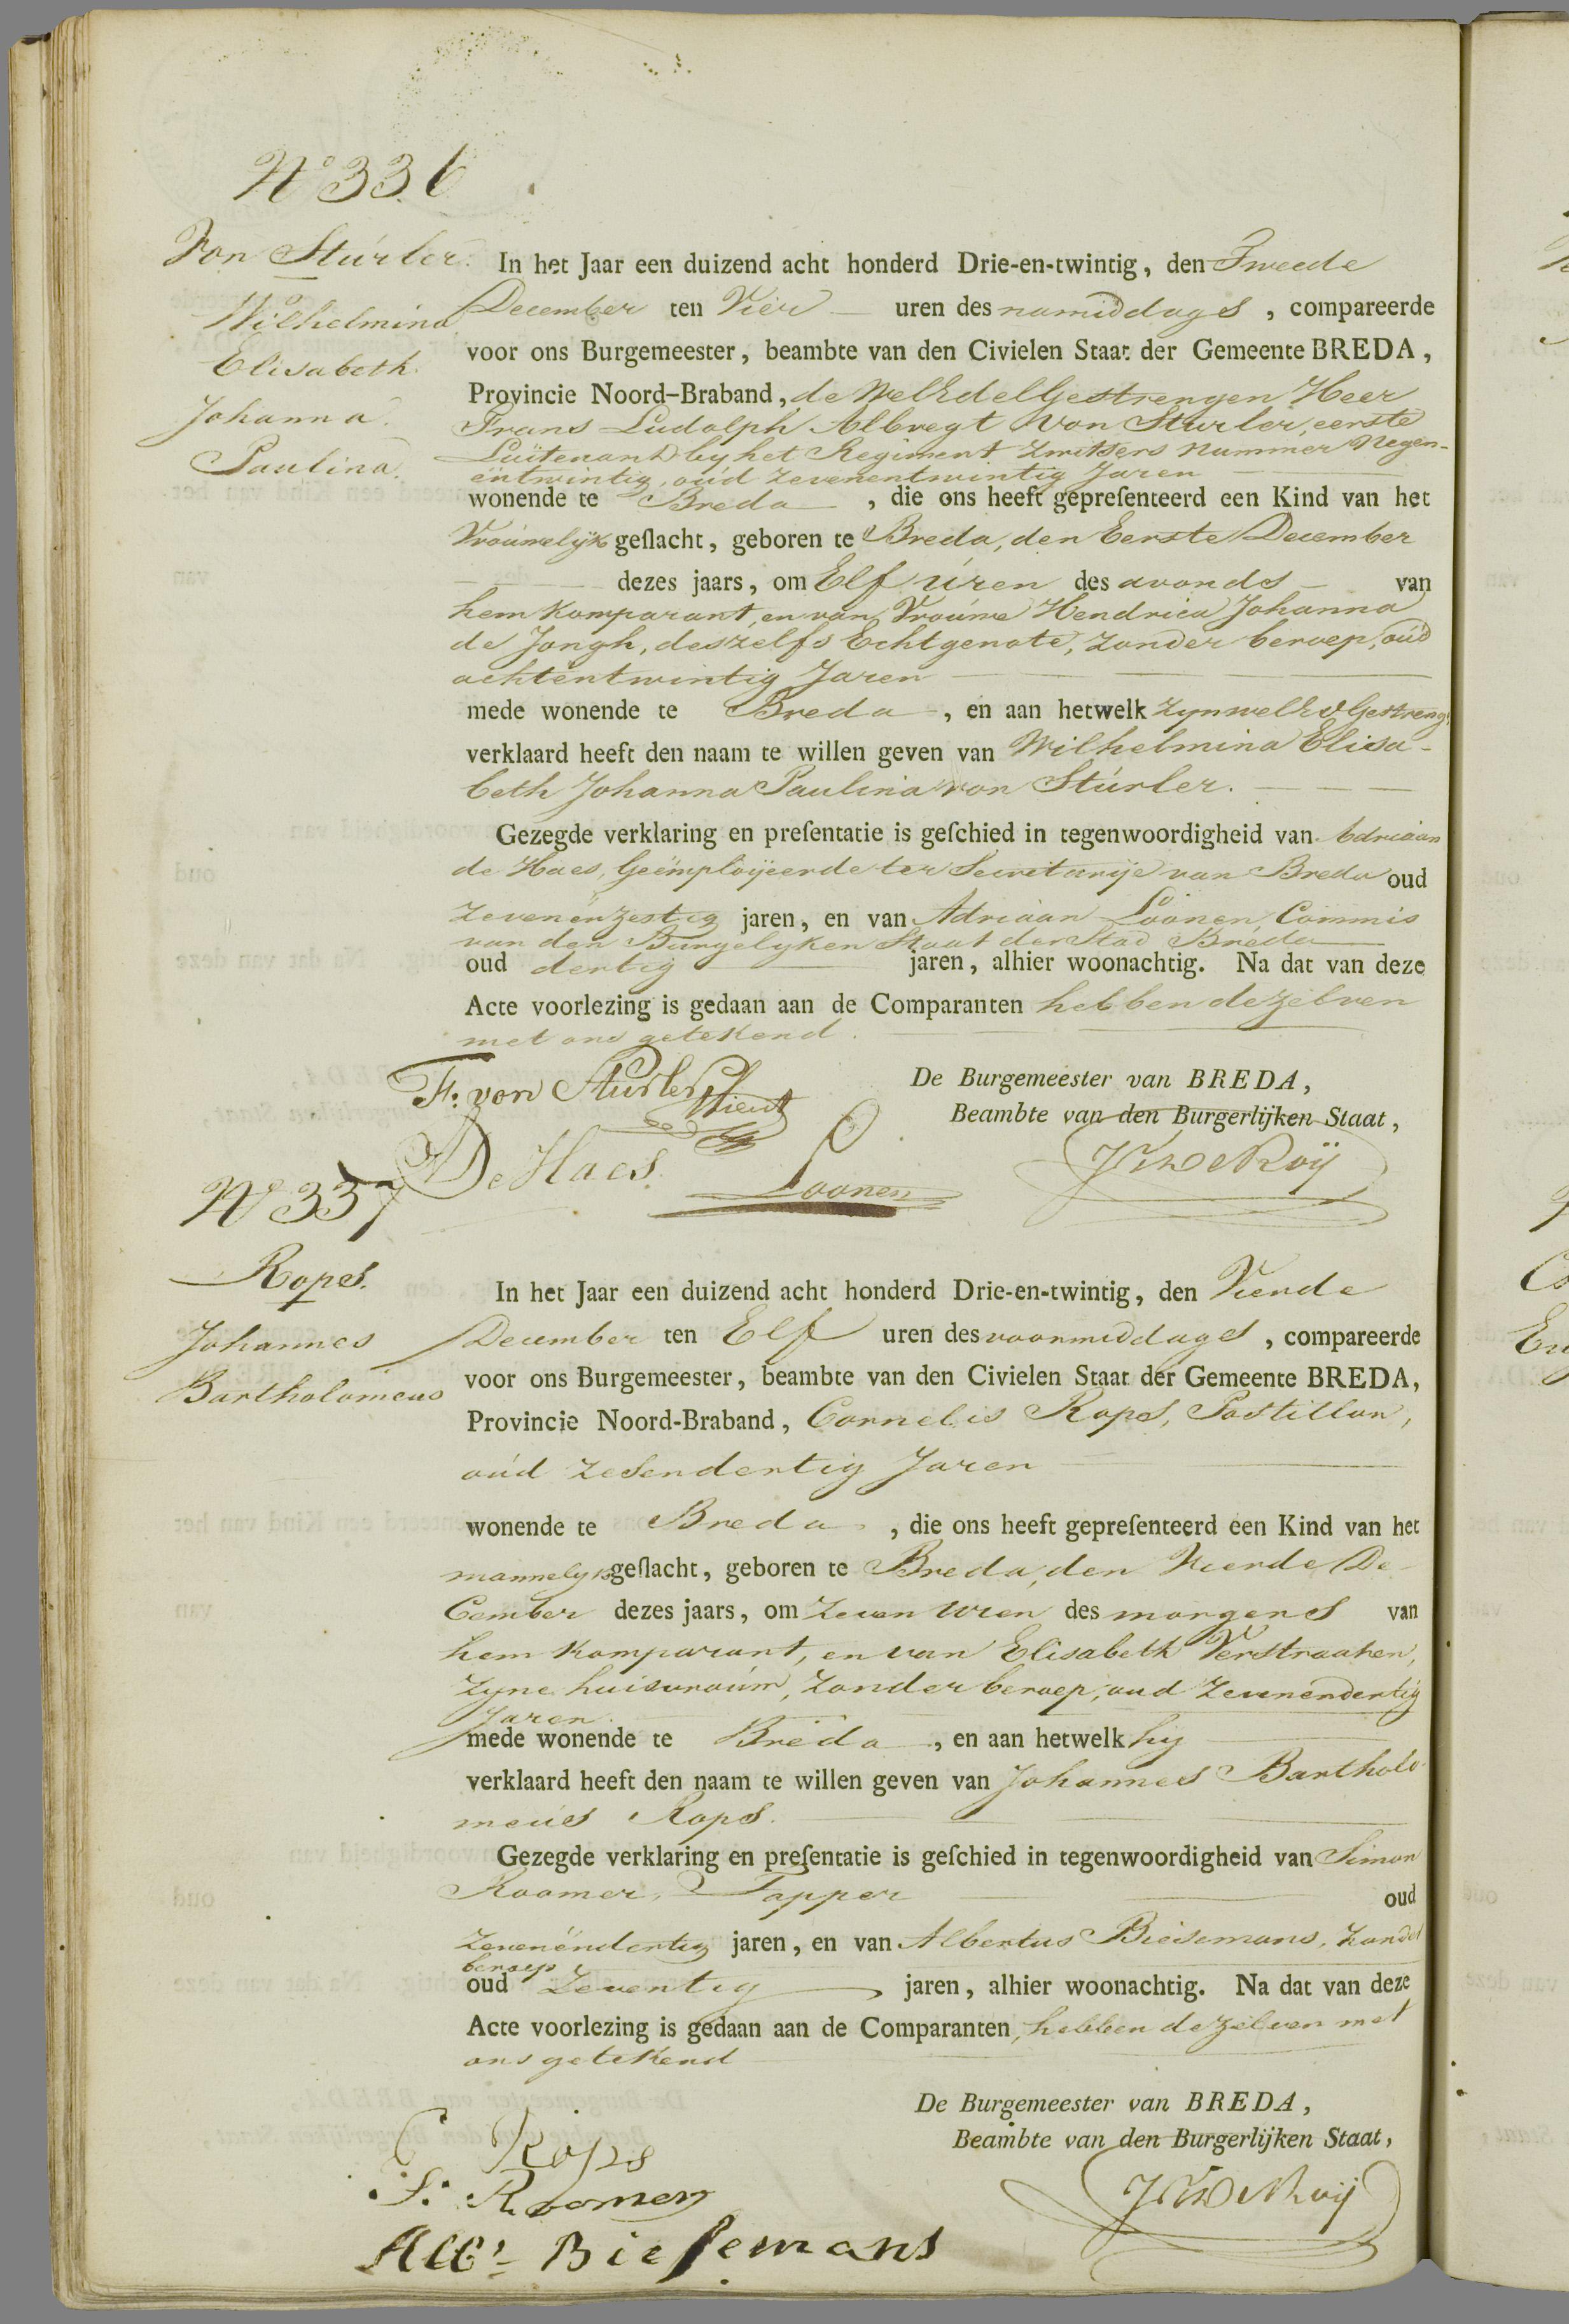 N° 336
Von Stúrler.
Wilhelmina
Elisabeth
Johanna.
Paulina.
In het Jaar een duizend acht honderd Drie-en-twintig, den Tweede
December ten Vier uren des namiddags, compareerde
voor ons Burgemeester, beambte van den Civielen Staat der Gemeente BREDA,
Provincie Noord-Braband, de WelEdelGestrengen Heer
Frans Ludolph Albregt von Sturler, eerste
Luitenant by het Regiment Zwitsers Nummer Negen-
entwintig, oúd zevenentwintig Jaren
wonende te Breda, die ons heeft gepresenteerd een Kind van het
Vroúwelyk geslacht, geboren te Breda, den Eerste December
dezes jaars, om Elf úren des avonds van
hem Komparant, en van Vroúwe Hendrica Johanna
de Jongh, deszelfs Echtgenote, zonder beroep, oúd
achtentwintig Jaren
mede wonende te Breda, en aan hetwelk zyn welEd Gestreng
verklaard heeft den naam te willen geven van Wilhelmina Elisa-
beth Johanna Paulina von Stúrler.
Gezegde verklaring en presentatie is geschied in tegenwoordigheid van Adriaan
de Haes, Geëmploÿeerde ter Secretarije van Breda oud
zevenënzestig jaren, en van Adriaan Loonen, Commis
van den Burgelyken Staat der Stad Breda
oud dertig jaren, alhier woonachtig. Na dat van deze
Acte voorlezing is gedaan aan de Comparanten hebben dezelven
met ons getekend.
F: von Sturler
De Burgemeester van BREDA,
Beambte van den Burgerlijken Staat,
De Haes.
Loonen
N° 337
Rops.
Johannes
Bartholomeus
In het Jaar een duizend acht honderd Drie-en-twintig, den Vierde
December ten Elf uren des voormiddags, compareerde
voor ons Burgemeester, beambte van den Civielen Staat der Gemeente BREDA,
Provincie Noord-Braband, Cornelis Rops, Postillon,
oúd zesendertig Jaren
wonende te Breda, die ons heeft gepresenteerd een Kind van het
mannelyk geslacht, geboren te Breda, den Vierde De-
cember dezes jaars, om zeven uren des morgens van
hem Komparant, en van Elisabeth Verstraaten,
zyne huisvroúw, zonder beroep, oud zevenendertig
Jaren.
mede wonende te Breda, en aan hetwelk hy
verklaard heeft den naam te willen geven van Johannes Bartholo-
meús Rops.
Gezegde verklaring en presentatie is geschied in tegenwoordigheid van Simon
Roomer, Tapper oud
zevenëndertig jaren, en van Albertus Biesemans, zonder
beroep
oud zeventig jaren, alhier woonachtig. Na dat van deze
Acte voorlezing is gedaan aan de Comparanten, hebben dezelven met
ons getekend
De Burgemeester van BREDA,
Beambte van den Burgerlijken Staat,
C Rops
S: Roomer
Albs Biesemans